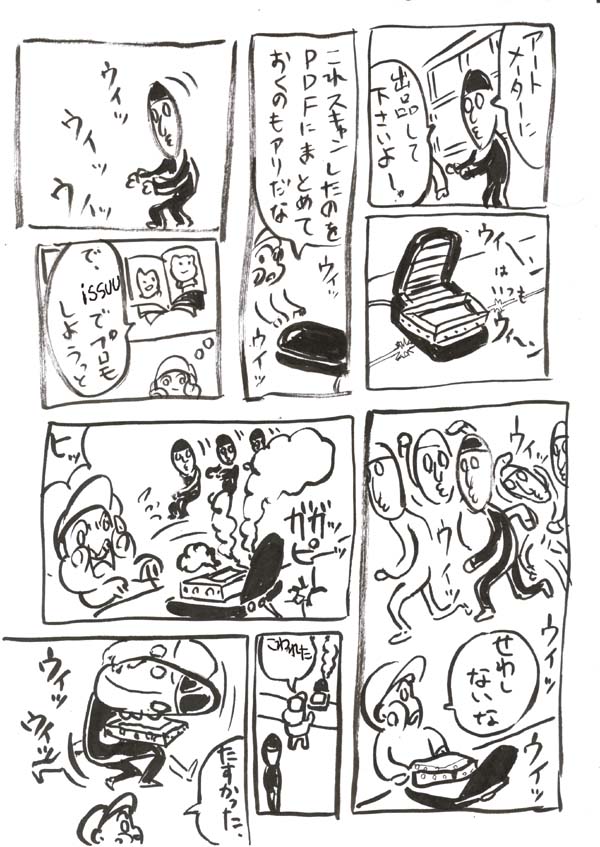 アート
メーターに
出品して
下さいよー。
ウィーン
はいつも
ウィーン
これスキャンしたのを
PDFにまとめて
おくのもアリだな
ウィッ
ウィッ
ウィッ
ウィッ
ウィッ
で、
issuu
でプロモ
しようっと
ウィッ
ウィッ
ウィッ
ウィッ
せわし
ないな
ヒッ
ガガッ
ピーッ
こわれた
ウィッ
ウィッ
たすかった、